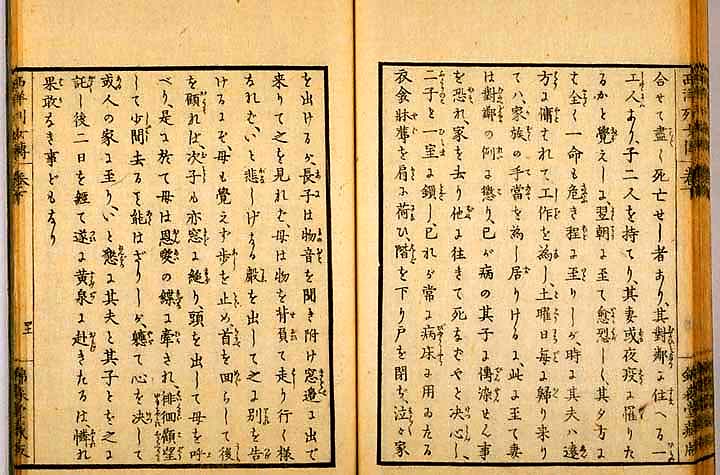 合せて盡く死亡せし者あり、其對鄰に住へる一
工人あり、子二人を持てり、其妻或夜疫に罹りた
るかと覺えしに、翌朝に至て愈烈しく、其夕方に
て全く一命も危き程に至りしが、時に其夫ハ遠
方に傭はれて、工作を為し、土曜日毎に歸り來り
てハ、家族の手當を為し居りけるに、此に至て妻
は對鄰の例に懲り、己が病の其子に傳染せん事
を恐れ、家を去り他に往きて死なむやと決心し、
二子と一室に鎖し、己れが常に病床に用ゐたる
衣食牀蓐を肩に荷ひ、階を下り戸を閉ぢ、泣々家
を出けるが、長子は物音を聞き附け窓邊に出で
來りて之を見れむ、母は物を背負て走り行く樣
なれむ、いと悲しげなる聲を出して之に別を告
けるにぞ、母も覺えず歩を止め首を回らして後
を顧れば、次子も亦窓に縋り、頭を出して母を呼
べり、是に於て母は恩愛の羈に牽され、徘徊顧望
して少間去るを能はざりしが、軈て心を決して
或人の家に至り、いと懇に其夫と其子とを之に
託し後二日を經て遂に黄泉に赴きたるは憐れ
果敢なき事どもなり
西洋列女傳 卷下
西洋列女傳 卷下
錦森堂藏版
錦森堂藏版